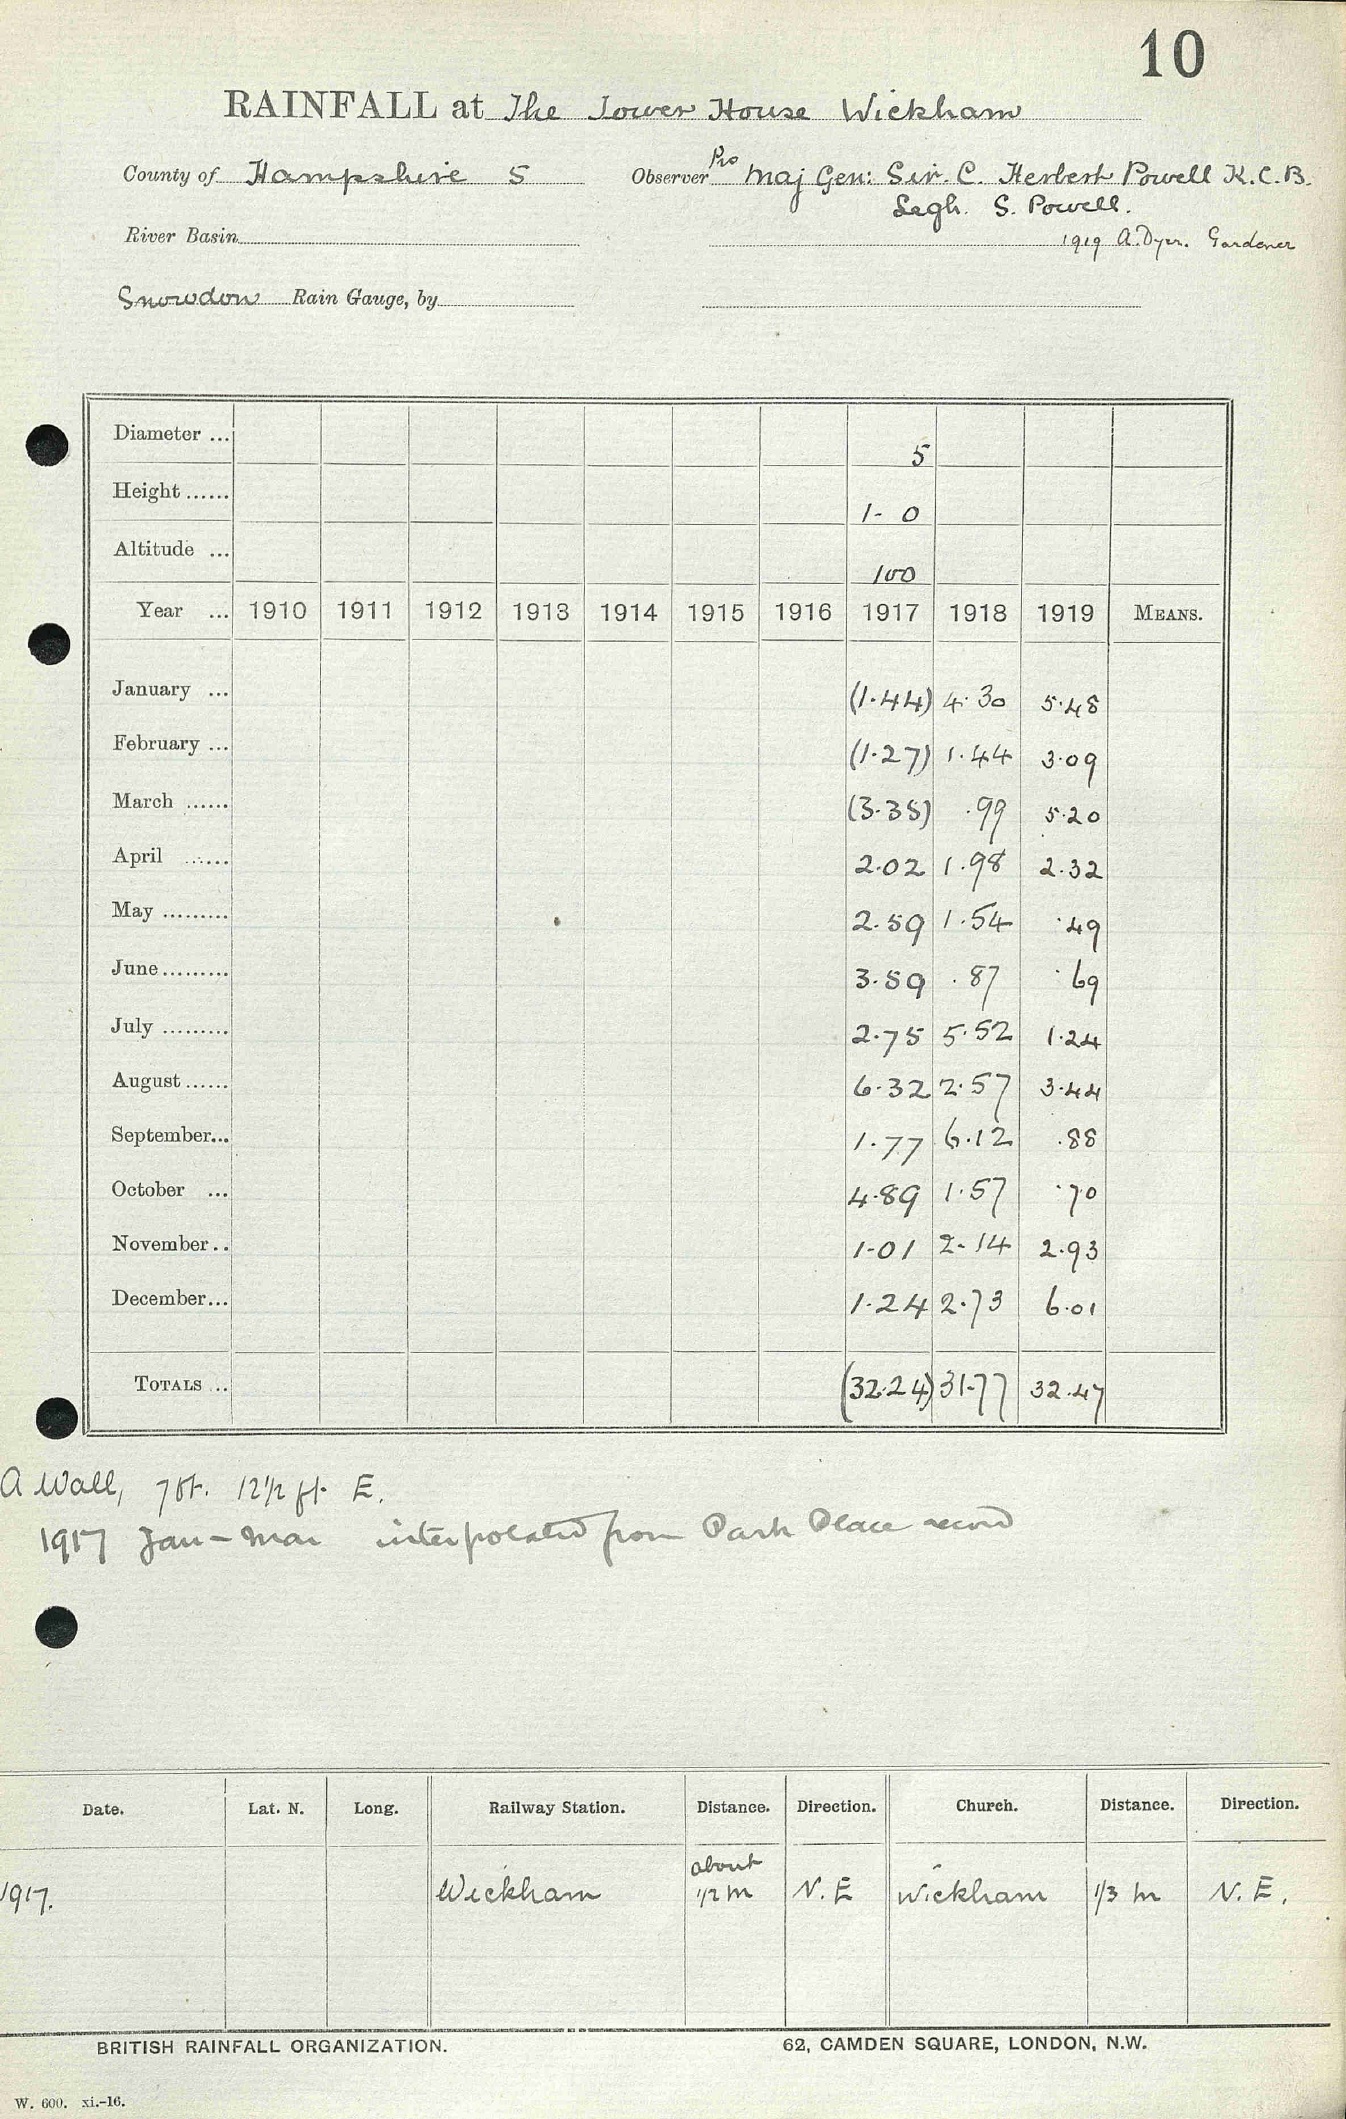 10
RAINFALL at The Tower House Wickham
County of Hampshire S Observer Pro Maj Gen: Sir. C. Herbert Powell K.C.B.
Legh. S. Powell.
River Basin 1919 A. Dyer. Gardener
Snowdon Rain Gauge, by
Diameter ... 5
Height ...... 1-0
Altitude ... 100
Year ... 1910 1911 1912 1913 1914 1915 1916 1917 1918 1919 MEANS.
January ... (1.44) 4.30 5.48
February ... (1.27) 1.44 3.09
March ...... (3.35) .99 5.20
April ...... 2.02 1.98 2.32
May ......... 2.59 1.54 .49
June ......... 3.59 .87 .69
July ......... 2.75 5.52 1.24
August ...... 6.32 2.57 3.44
September... 1.77 6.12 .88
October ... 4.89 1.57 .70
November.. 1.01 2.14 2.93
December... 1.24 2.73 6.01
TOTALS ... (32.24) 31.77 32.47
A Wall, 7ft. 12½ ft E.
1917 Jan - Mar interpolated from Park Place record
Date. Lat. N. Long. Railway Station. Distance. Direction. Church. Distance. Direction.
1917. Wickham about ½ m N.E Wickham ⅓ m N.E.
BRITISH RAINFALL ORGANIZATION. 62, CAMDEN SQUARE, LONDON, N.W.
W. 600. xi.-16.